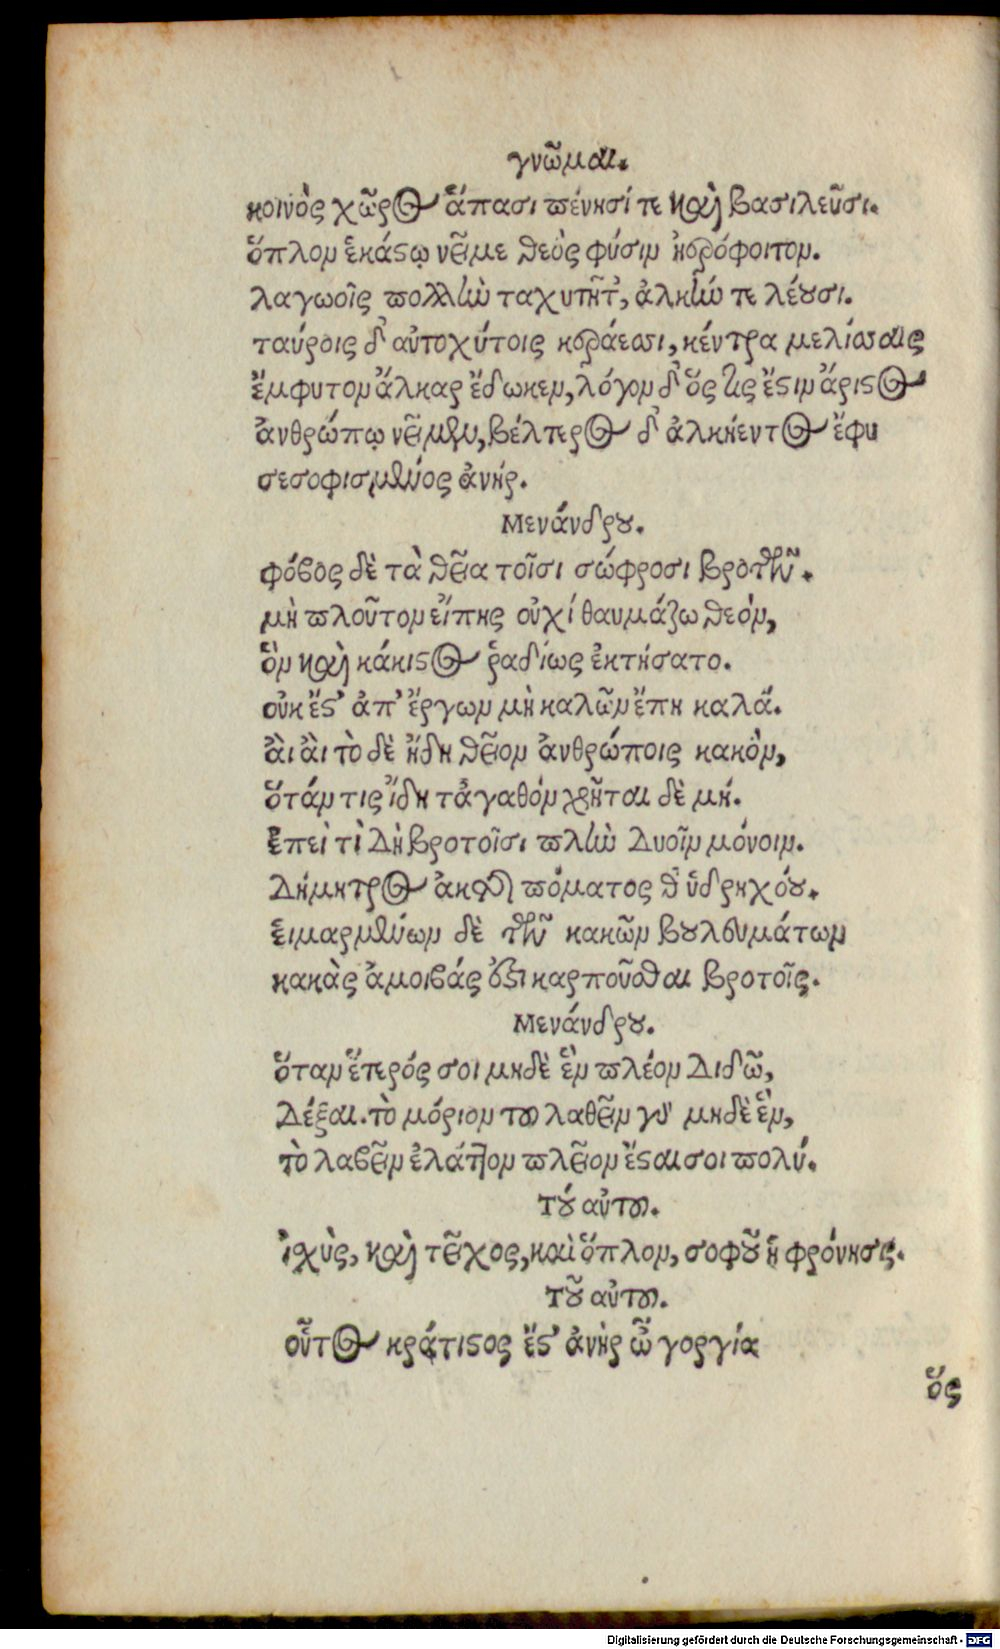 γνῶμαι.
κοινὸς χῶρος ἅπασι πένησί τε καὶ βασιλεῦσι.
ὅπλον ἑκάστῳ νεῖμε θεὸς φύσιν ἠερόφοιτον.
λαγωοῖς πολλὴν ταχυτῆτ', ἀλκήν τε λέουσι.
ταύροις δ' αὐτοχύτοις κεράεσσι, κέντρα μελίσσαις
ἔμφυτον ἄλκαρ ἔδωκεν, λόγον δ' ὅς τις ἔστιν ἄριστος
ἀνθρώπῳ νεῖμεν, βέλτερος δ' ἀλκήεντος ἔφυ
σεσοφισμένος ἀνήρ.
Μενάνδρου.
φόβος δὲ τὰ θεῖα τοῖσι σώφροσι βροτῶν.
μὴ πλοῦτον εἴπης οὐχί θαυμάζω θεόν,
ὃν καὶ κάκιστος ῥαδίως ἐκτήσατο.
οὐκ ἔστ' ἀπ' ἔργων μὴ καλῶν ἔπη καλά.
ἂι ἂι τὸ δὲ ἤδη θεῖον ἀνθρώποις κακὸν,
ὅτάν τις ἴδη τἀγαθόν χρῆται δὲ μή.
ἐπεὶ τὶ δὴ βροτοῖσι πλὴν δυοῖν μόνοιν.
Δήμητρος ἀκτῆς πόματος θ' ὑδρηχόου.
εἱμαρμένων δὲ τῶν κακῶν βουλευμάτων
κακὰς ἀμοιβάς ἐστι καρποῦσθαι βροτοῖς.
Μενάνδρου.
ὅταν ἕτερός σοι μηδὲ ἓν πλέον διδῶ,
δέξαι. τὸ μόριον τοῦ λαβεῖν γὰρ μηδὲ ἓν,
τὸ λαβεῖν ἐλάττον πλεῖον ἔσται σοι πολύ.
Τοῦ αὐτοῦ.
ἰχὺς, καὶ τεῖχος, καὶ ὅπλον, σοφοῦ ἡ φρόνησις.
Τοῦ αὐτοῦ.
οὗτος κράτιστος ἔστ' ἀνὴρ ὦ γοργία
ὅς
Digitalisierung gefördert durch die Deutsche Forschungsgemeinschaft - DFG